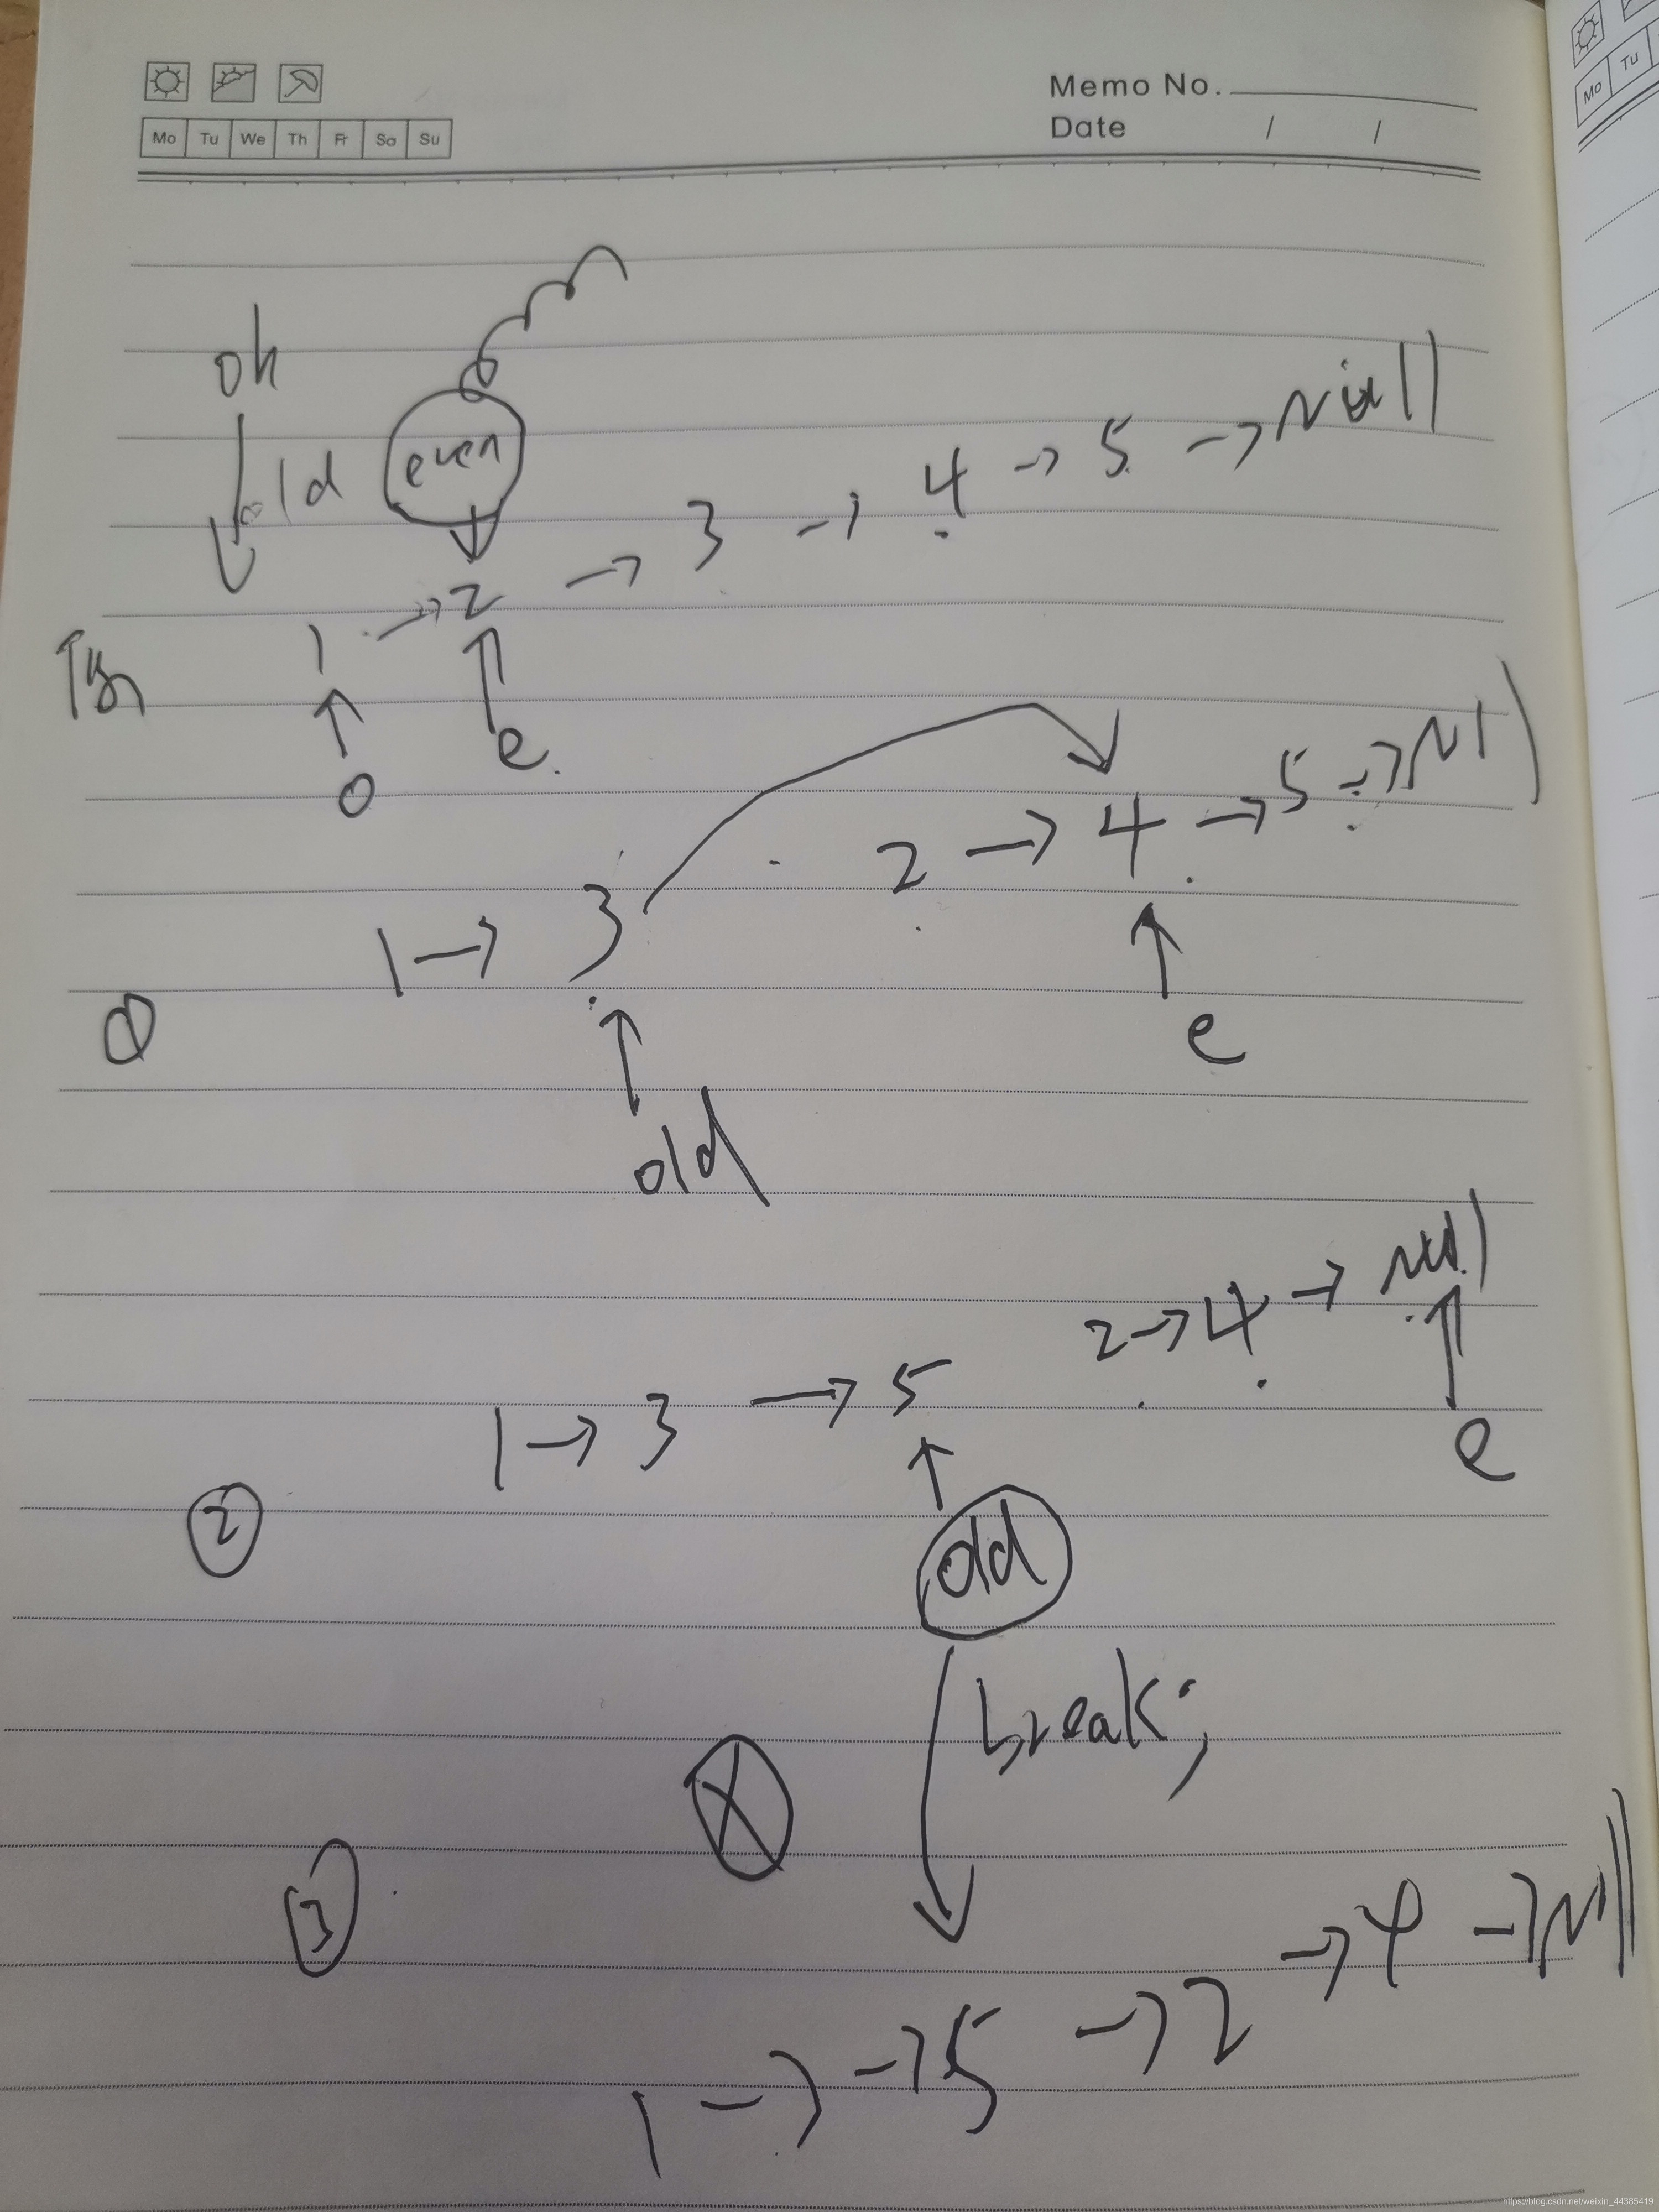 Memo No.
Date / /
Mo Tu We Th Fr Sa Su
Mo Tu
oh
old even
1 → 2 → 3 → 4 → 5 → Null
o e
1 → 3 2 → 4 → 5 → Null
①
old e
1 → 3 → 5 2 → 4 → Null
② e
old
break;
③
1 → 3 → 5 → 2 → 4 → Null
https://blog.csdn.net/weixin_44385419